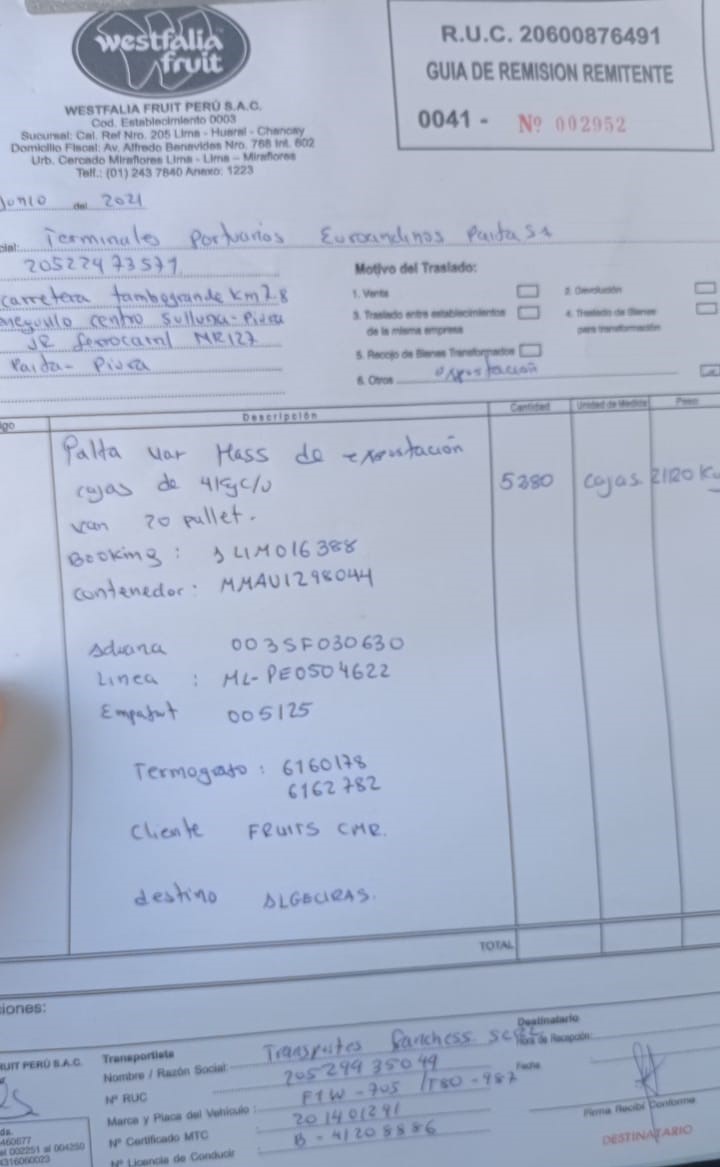 westfalia
fruit
WESTFALIA FRUIT PERÚ S.A.C.
Cod. Establecimiento 0003
Sucursal: Cal. Ref Nro. 205 Lima - Huaral - Chancay
Domicilio Fiscal: Av. Alfredo Benavides Nro. 768 Int. 602
Urb. Cercado Miraflores Lima - Lima - Miraflores
Telf.: (01) 243 7640 Anexo: 1223
R.U.C. 20600876491
GUIA DE REMISION REMITENTE
0041 - Nº 002952
Junio del 2021
cial: Terminales Portuarios Euroandinos Paita SA
20522473571
carretera tambogrande Km 7.8
centro Sullana - Piura
JR ferrocarril NR127
Paita - Piura
Motivo del Traslado:
1. Venta
2. Devolución
3. Traslado entre establecimientos
de la misma empresa
4. Traslado de Bienes
para transformación
5. Recojo de Bienes Transformados
6. Otros exportación
igo Descripción Cantidad Unidad de Medida Peso
Palta var Hass de exportación
cajas de 4Kg c/u 5280 cajas 21120 Kg
van 20 pullet.
Booking : SLIM016388
contenedor : MMAU1298044
Aduana 003SF030630
Linea : ML-PE0504622
005125
Termografo : 6160178
6162782
Cliente FRUITS CMR.
destino ALGECIRAS.
TOTAL
ciones:
UIT PERÚ S.A.C.
Transportista
Nombre / Razón Social: Transportes Sanchess
Nº RUC 20529935049
Marca y Placa del Vehículo : F1W-705 / T80-987
Nº Certificado MTC 201401291
Nº Licencia de Conducir : B-41208886
Destinatario
Hora de Recepción:
Fecha
Firma Recibí Conforme
DESTINATARIO
460677
al 002251 al 004250
0316060023